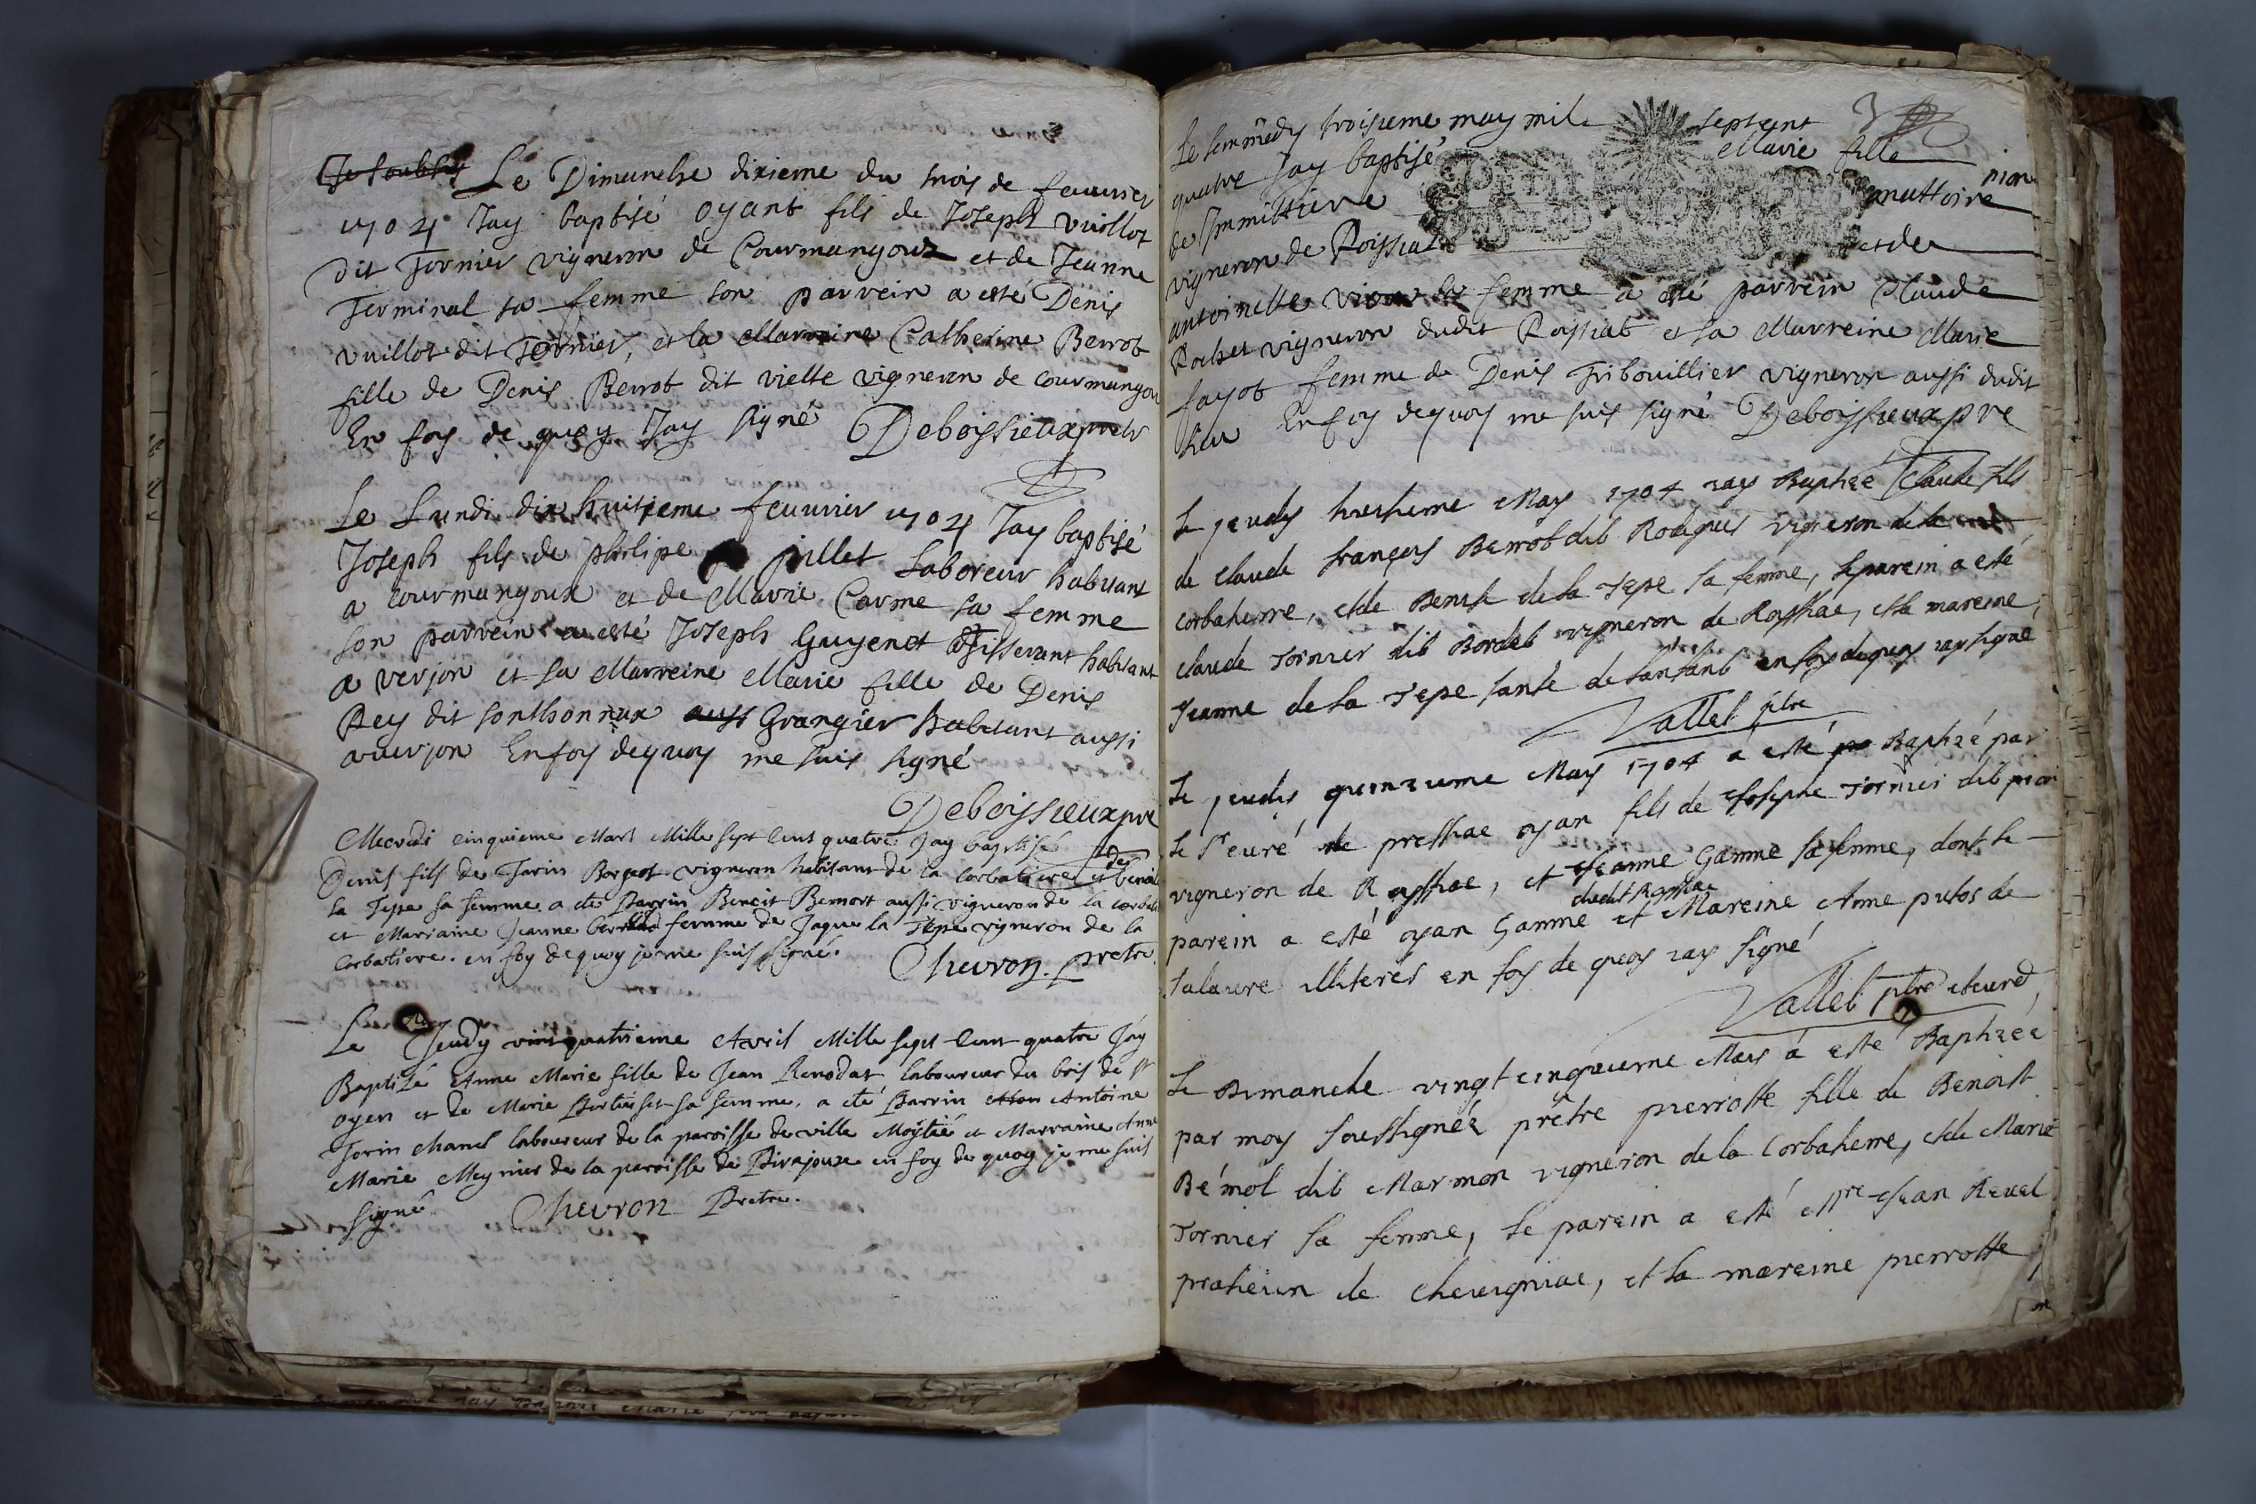 Le Dimanche dixieme du mois de feuurier
1704 Jay baptisé oyant fils de Joseph vuillot
dit Tornier vigneron de Courmangoux et de Jeanne
Terminal sa femme son parrein a esté Denis
vuillot dit Tornier, et la Marraine Catherine Berrot
fille de Denis Berrot dit vielle vigneron de courmangou
En foy de quoy Jay signé Deboissieux pretr
Le Lundi dix huitieme feuurier 1704 Jay baptisé
Joseph fils de philipe pillet Laboreur habitant
a courmangoux et de Marie Carme sa femme
son parrein a esté Joseph Guyenet Tisserant habitant
a verjon et sa Marreine Marie fille de Denis
Rey dit sonthonnax Grangier habitant aussi
a verjon En foy dequoy me suis signé
Deboissieux pre
Mecredi cinquieme Mars Mille sept cens quatre Jay baptisé
Denis fils de Tarin Borgeot vigneron habitant de la Corbatiere et de benoite
la Tepe sa femme a ete Parrin Benoit Bemort aussi vigneron de la corbati
et Marraine Jeanne femme de Jaque la Tepe vigneron de la
Corbatiere. en foy de quoy je me suis signé.
Chevron. pretre.
Le Jeudy vint quatrieme Avril Mille sept cens quatre Jáy
Baptizé Anne Marie fille de Jean Renodat laboureur du bris de st
oyen et de Marie sa femme. a eté Parrin Antoine
Torin chanel laboureur de la paroisse de ville Moÿtié et Marraine Anne
Marie Meynier de la paroisse de Pirajoux en foy de quoy je me suis
signé. Chevron Pretre.
Le sammedy troisieme may mil septcent
quatre Jay baptisé Marie fille
de Emmilliane
vigneron de Roissiat et de
antoinette sa femme a esté parrein Claude
Rochet vigneron dudit Roissiat et sa Marreine Marie
fayot femme de Denis Tribouillier vigneron aussi dudit
lieu En foy dequoy me suis signé Deboissieux pre
Le jeudy huictieme May 1704 iay Baptizé Claude fils
de claude françois Berrot dit Rodigues vigneron de la
corbatierre, et de Benoite de la Tepe sa femme, le parein a esté
claude Tornier dit Bordet vigneron de Rossiac, et la mareine
Jeanne de la Tepe tante de lanfant en foy de quoy iay signé
Vallet ptre
Le jeudy quinzieme May 1704 a esté Baptizé par
le Sr curé de pressiac oyan fils de Josephe Tornier dit pion
vigneron de Rossiac, et Jeanne Gamme sa femme, dont le
dudit Rossiac
parein a esté oyan Gamme et Mareine Anne putos de
Salavre illiteres en foy de quoy iay signé
Vallet ptre et curé
Le Dimanche vingt cinquieme May a esté Baptizée
par moy soussignéz prêtre pierrotte fille de Benoist
Bémol dit Marmon vigneron de la Corbatierre, et de Marie
Tornier sa femme, le parein a esté Mre Jean Revel
praticien de chevigniac, et la mareine pierrotte